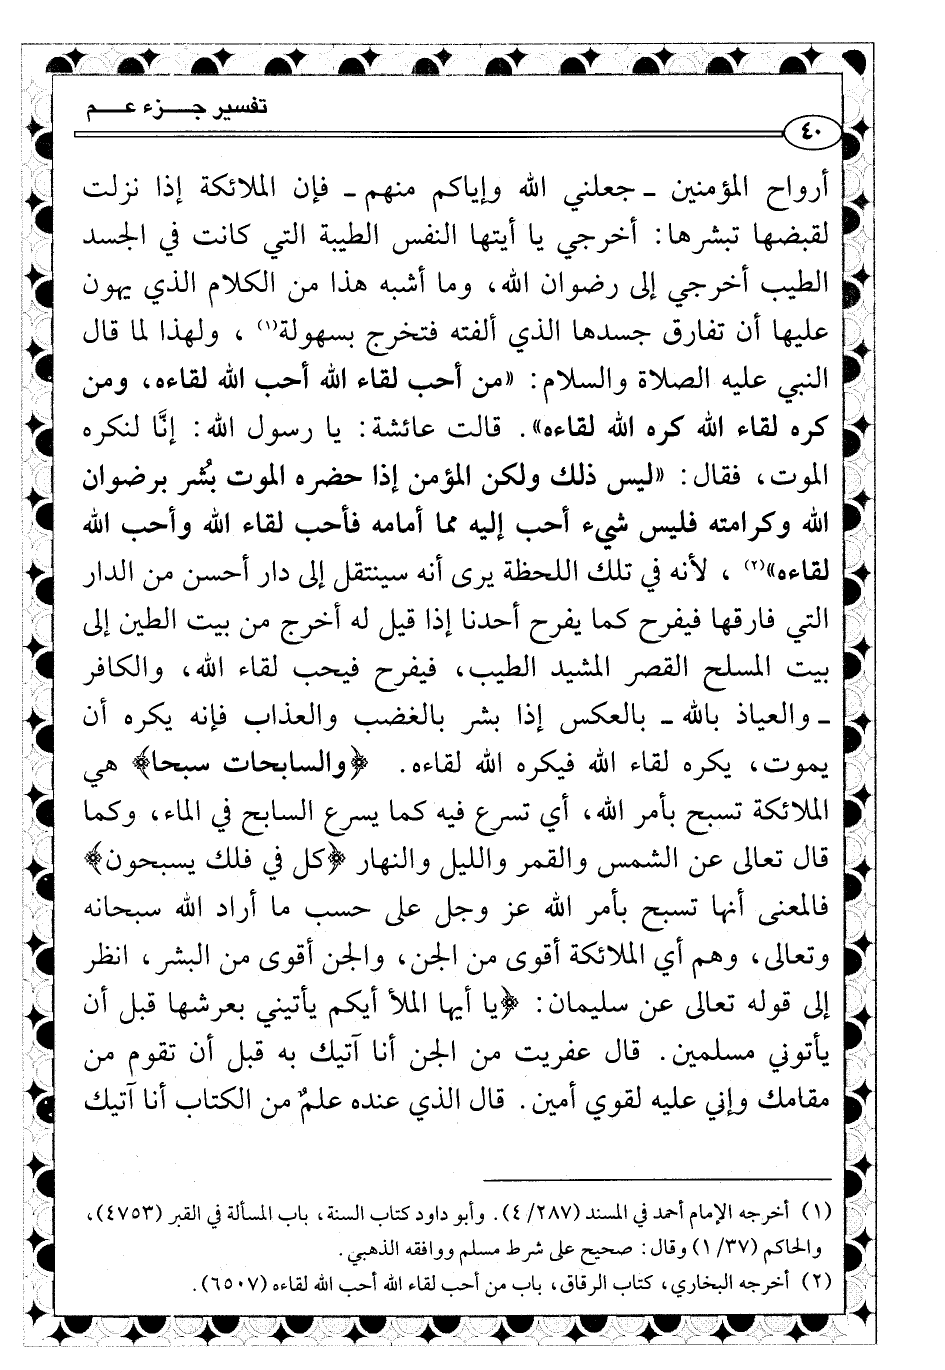 تفسير جـــزء عـــم
٤٠
أرواح المؤمنين ـ جعلني الله وإياكم منهم ـ فإن الملائكة إذا نزلت
لقبضها تبشرها: أخرجي يا أيتها النفس الطيبة التي كانت في الجسد
الطيب أخرجي إلى رضوان الله، وما أشبه هذا من الكلام الذي يهون
عليها أن تفارق جسدها الذي ألفته فتخرج بسهولة(١)، ولهذا لما قال
النبي عليه الصلاة والسلام: «من أحب لقاء الله أحب الله لقاءه، ومن
كره لقاء الله كره الله لقاءه». قالت عائشة: يا رسول الله: إنَّا لنكره
الموت، فقال: «ليس ذلك ولكن المؤمن إذا حضره الموت بُشر برضوان
الله وكرامته فليس شيء أحب إليه مما أمامه فأحب لقاء الله وأحب الله
لقاءه»(٢)، لأنه في تلك اللحظة يرى أنه سينتقل إلى دار أحسن من الدار
التي فارقها فيفرح كما يفرح أحدنا إذا قيل له أخرج من بيت الطين إلى
بيت المسلح القصر المشيد الطيب، فيفرح فيحب لقاء الله، والكافر
ـ والعياذ بالله ـ بالعكس إذا بشر بالغضب والعذاب فإنه يكره أن
يموت، يكره لقاء الله فيكره الله لقاءه. ﴿والسابحات سبحا﴾ هي
الملائكة تسبح بأمر الله، أي تسرع فيه كما يسرع السابح في الماء، وكما
قال تعالى عن الشمس والقمر والليل والنهار ﴿كل في فلك يسبحون﴾
فالمعنى أنها تسبح بأمر الله عز وجل على حسب ما أراد الله سبحانه
وتعالى، وهم أي الملائكة أقوى من الجن، والجن أقوى من البشر، انظر
إلى قوله تعالى عن سليمان: ﴿يا أيها الملأ أيكم يأتيني بعرشها قبل أن
يأتوني مسلمين. قال عفريت من الجن أنا آتيك به قبل أن تقوم من
مقامك وإني عليه لقوي أمين. قال الذي عنده علمٌ من الكتاب أنا آتيك
(١) أخرجه الإمام أحمد في المسند (٤/٢٨٧). وأبو داود كتاب السنة، باب المسألة في القبر (٤٧٥٣)،
والحاكم (١/٣٧) وقال: صحيح على شرط مسلم ووافقه الذهبي.
(٢) أخرجه البخاري، كتاب الرقاق، باب من أحب لقاء الله أحب الله لقاءه (٦٥٠٧).